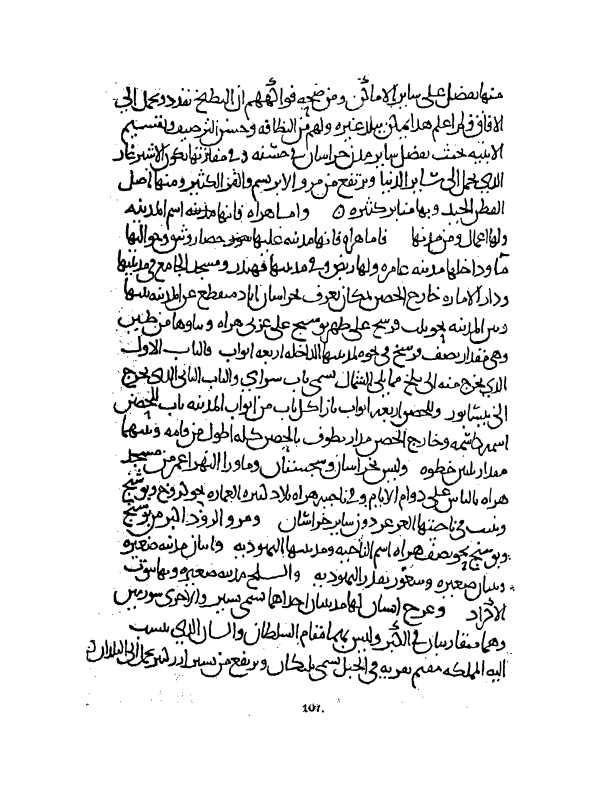 منها تفضل على ساير الاماكن ومن صحه فواكههم ان البطيخ يقدد ويحمل الى
الافاق ولم اعلم هذا يمكن ببلد غيره ولهم من النظافه وحسن الترصيف وتقسيم
الابنيه بحيث تفضل ساير مدن خراسان في حسنه وفي مفازتها يكون الاشترغاز
الذي يحمل الى ساير الدنيا ويرتفع من مرو الابريسم والقز الكثير ومنها اصل
القطن الجيد وبها منابر كثيره واما هراه فانها مدينه اسم المدينه
ولها اعمال ومن مدنها فاما هراه فانها مدينه عليها حصار وثيق وحواليها
ما وداخلها مدينه عامره ولها ربض وفي مدينتها قهندز ومسجد الجامع في مدينتها
ودار الاماره خارج الحصن بمكان يعرف بخراسان اباد منقطع عن المدينه بينها
وبين المدينه نحو ثلث فرسخ على طريق بوسنج على غربي هراه وبناوها من طين
وهي مقدار نصف فرسخ في نحوه لمدينتها الداخله اربعه ابواب فالباب الاول
الذي يخرج منه الى بلخ مما يلي الشمال يسمى باب سراي والباب الثاني الذي يخرج
الى نيسابور وللحصن اربعه ابواب بازا كل باب من ابواب المدينه باب للحصن
اسمه كاسمه وخارج الحصن جدار يطوف بالحصن كله اطول من قامه وبينهما
مقدار ثلثين خطوه وليس بخراسان وسجستان وماورا النهر اعمر من مسجد
هراه بالناس على دوام الايام وفي ناحيه هراه بلاد كثيره العماره نحو كروخ وبوشنج
في ناحيتها العرعر دون ساير خراسان ومرو الروذ اكبر من بوسنج
وبوسنج نحو نصف هراه اسم الناحيه ومدينتها اليهوديه مدينه صغيره
صغيره بقدر اليهوديه مدينه صغيره وبها بيوت
الاكراد وغرج لها مدينتان احداهما تسمى بسير والاخرى سورمين
وهما متقاربتان في الكبر وليس بهما مقام السلطان والسار الذي ينسب
اليه المملكه مقيم بقريه في الجبل تسمى بلكان ويرتفع من بسير ارز كثير يحمل الى البلدان
107.